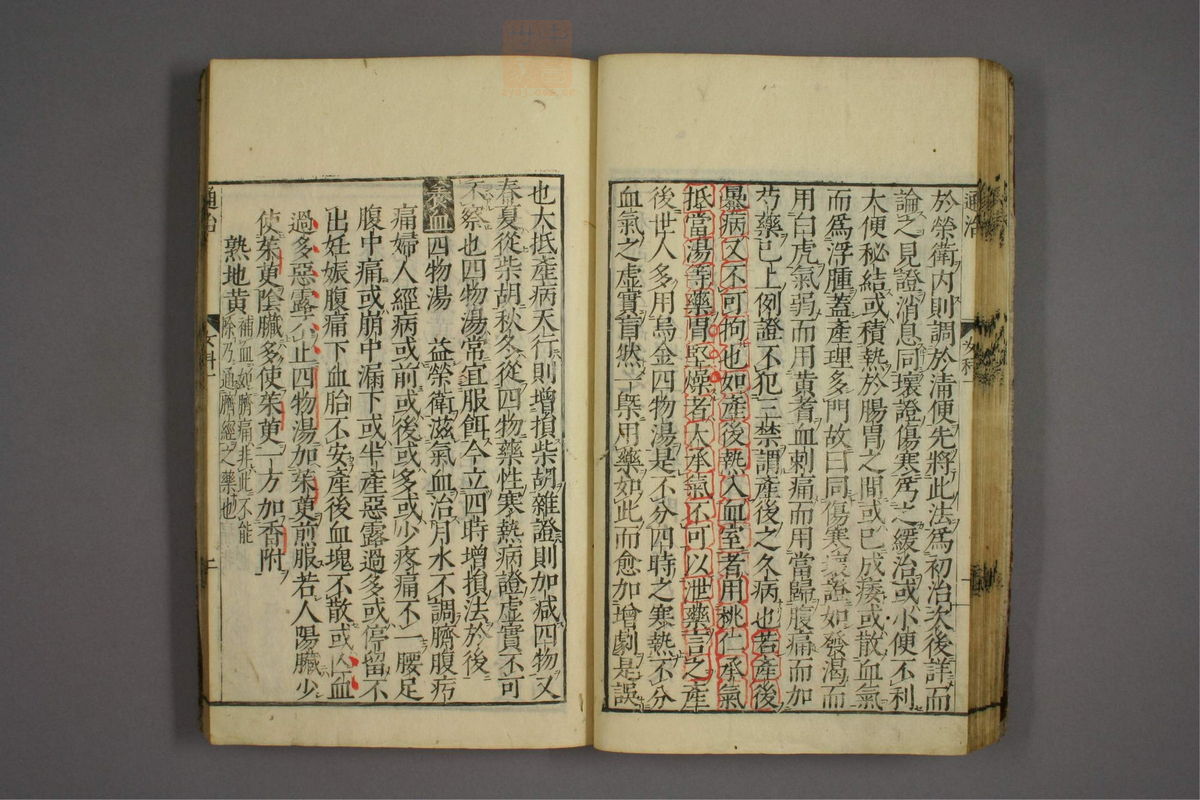 通治
女科
於榮衛內則調於清便先將此法爲初治次後詳而
論之見證消息同壞證傷寒爲之緩治或小便不利
大便秘結或積熱於腸胃之間或已成痿或散血氣
而爲浮腫蓋產理多門故曰同傷寒壞證如發渴而
用白虎氣弱而用黃耆血刺痛而用當歸腹痛而加
芍藥已上例證不犯三禁謂產後之久病也若產後
暴病又不可拘也如產後熱入血室者用桃仁承氣
抵當湯等藥胃堅燥者大承氣不可以泄藥言之產
後世人多用烏金四物湯是不分四時之寒熱不分
血氣之虛實盲然一槩用藥如此而愈加增劇是誤
也大抵產病天行則增損柴胡雜證則加減四物又
春夏從柴胡秋冬從四物藥性寒熱病證虛實不可
不察也四物湯常宜服餌今立四時增損法於後
養血四物湯 益榮衛滋氣血治月水不調臍腹㽲
痛婦人經病或前或後或多或少疼痛不一腰足
腹中痛或崩中漏下或半產惡露過多或停留不
出妊娠腹痛下血胎不安產後血塊不散或亡血
過多惡露不止四物湯加茱萸煎服若人陽臟少
使茱萸陰臟多使茱萸一方加香附
熟地黃 補血如臍痛非此不能
除乃通臍經之藥也
通治
女科
十